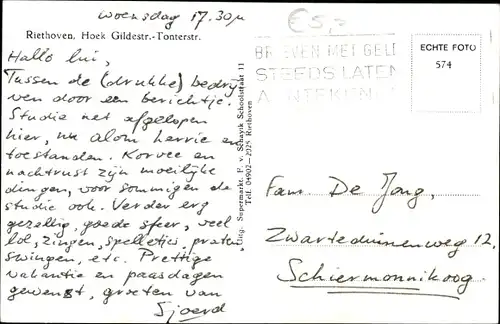 woensdag 17.30u
€5,-
Riethoven, Hoek Gildestr.-Tonterstr.
BRIEVEN MET GELD
STEEDS LATEN
AANTEKENEN
ECHTE FOTO
574
Hallo lui,
Tussen de (drukke) bedrij
ven door een berichtje.
Studie net afgelopen
hier, nu alom herrie en
toestanden. Korvee en
nachtrust zijn moeilijke
dingen, voor sommigen de
studie ook. Verder erg
gezellig, goede sfeer, veel
lol, zingen, spelletjes, praten
swingen, etc. Prettige
vakantie en paasdagen
gewenst, groeten van
Sjoerd
Uitg. Supermarkt F. v. Schayik Schoolstraat 11
Telf. 04902-2925 Riethoven
Fam. De Jong,
Zwarteduinenweg 12,
Schiermonnikoog.